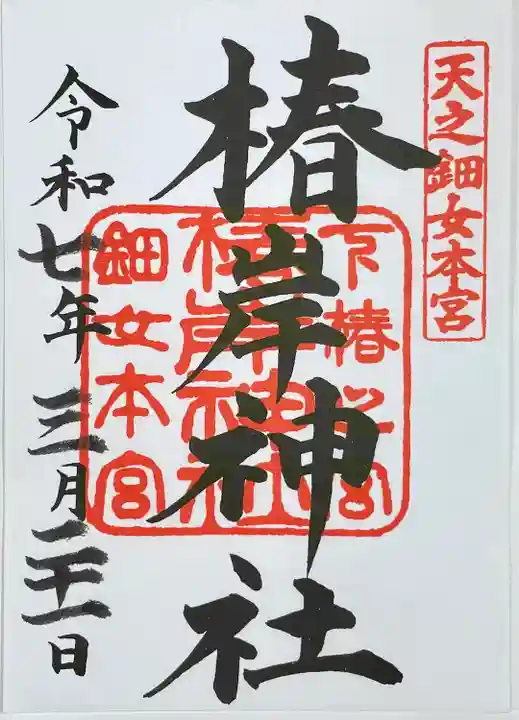 天之鈿女本宮
椿岸神社
下椿
椿岸神社
鈿女本宮
令和七年三月二十一日